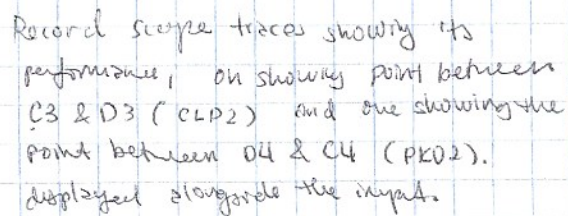 Record scope traces showing its
performance, on showing point between
C3 & D3 (CLP2) and one showing the
point between D4 & C4 (PKD2).
displayed alongside the input.